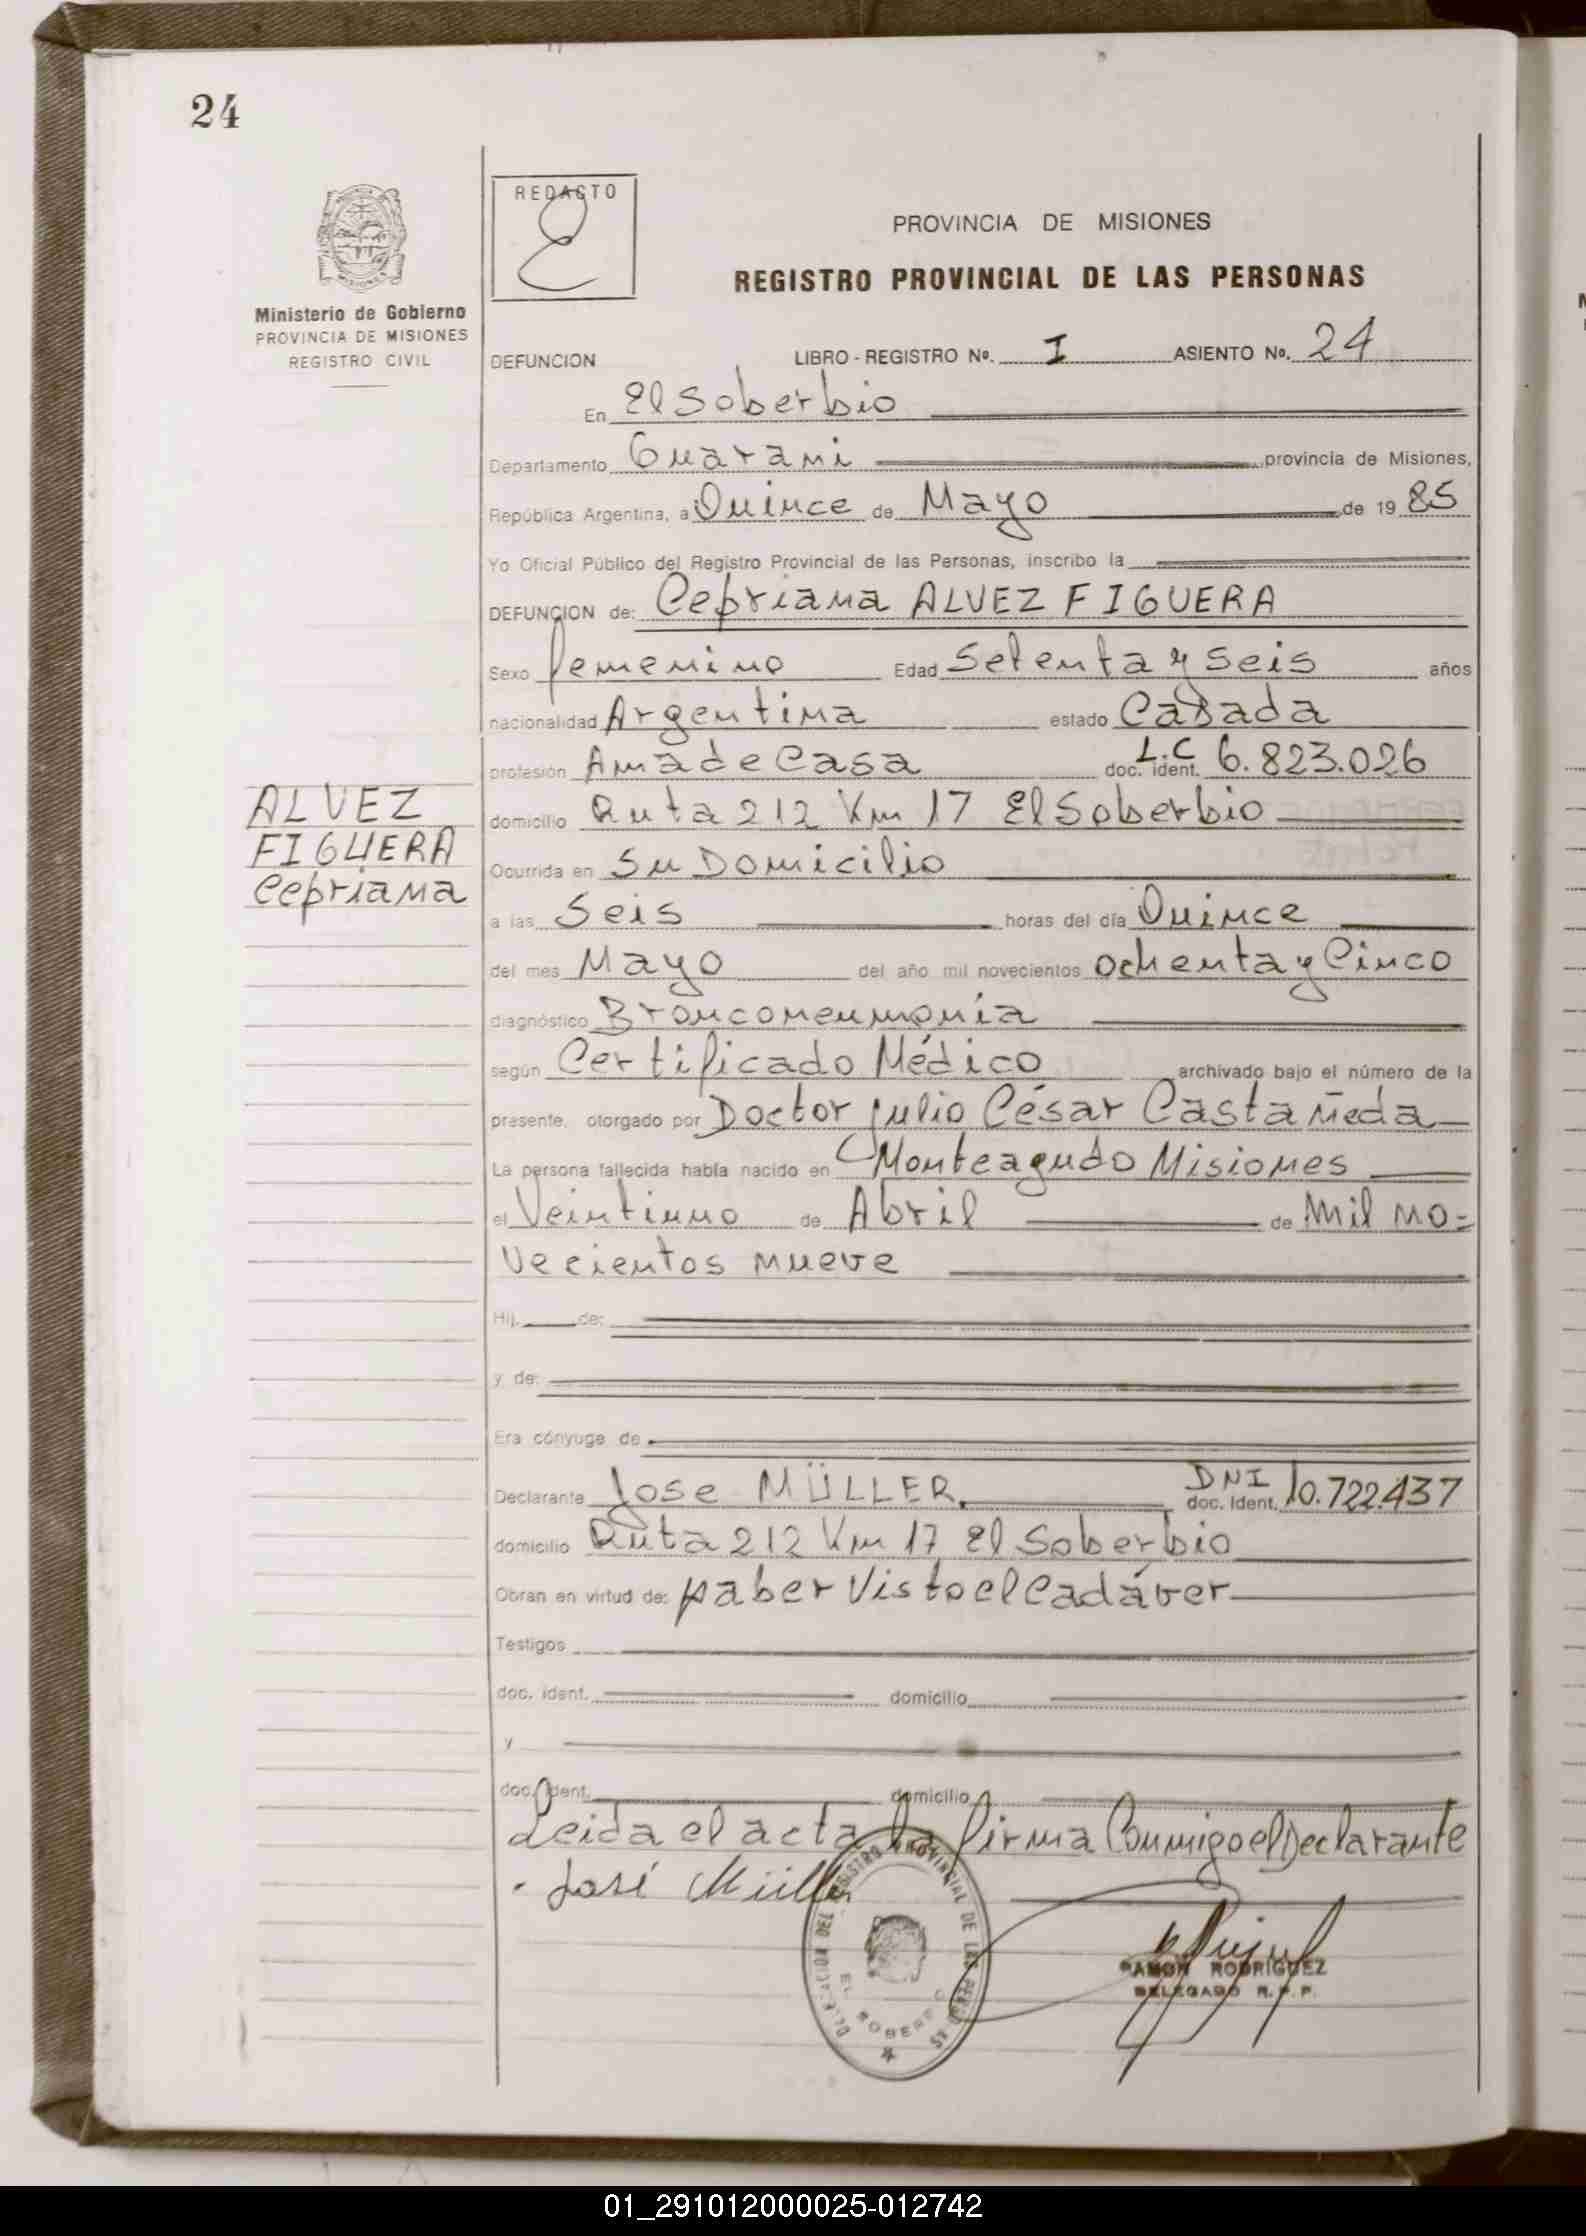 24
REDACTO
PROVINCIA DE MISIONES
REGISTRO PROVINCIAL DE LAS PERSONAS
Ministerio de Gobierno
PROVINCIA DE MISIONES
REGISTRO CIVIL
DEFUNCION LIBRO - REGISTRO Nº. I ASIENTO No. 24
En El Soberbio
Departamento Guarani provincia de Misiones,
República Argentina, a Quince de Mayo de 1985
Yo Oficial Público del Registro Provincial de las Personas, inscribo la
DEFUNCION de: Cepriana ALVEZ FIGUERA
Sexo femenino Edad Setenta y Seis años
nacionalidad Argentina estado Casada
profesión Ama de Casa doc. ident. L.C 6.823.026
ALVEZ
FIGUERA
Cepriana
domicilio Ruta 212 Km 17 El Soberbio
Ocurrida en Su Domicilio
a las Seis horas del día Quince
del mes Mayo del año mil novecientos Ochenta y Cinco
diagnóstico Bronconeumonía
según Certificado Médico archivado bajo el número de la
presente, otorgado por Doctor Julio César Castañeda
La persona fallecida había nacido en Monteagudo Misiones
el Veintiuno de Abril de Mil no=
vecientos nueve
Hij de:
y de:
Era cónyuge de
Declarante Jose MÜLLER. DNI doc. ident. 10.722.437
domicilio Ruta 212 Km 17 El Soberbio
Obran en virtud de: haber Visto el Cadáver
Testigos
doc. ident. domicilio
y
doc. ident. domicilio
Leida el acta la firma Conmigo el Declarante
José Müller
DELEGACION DEL REGISTRO PROVINCIAL DE LAS PERSONAS
EL SOBERBIO
RAMON RODRIGUEZ
DELEGADO R.P.P.
01_291012000025-012742